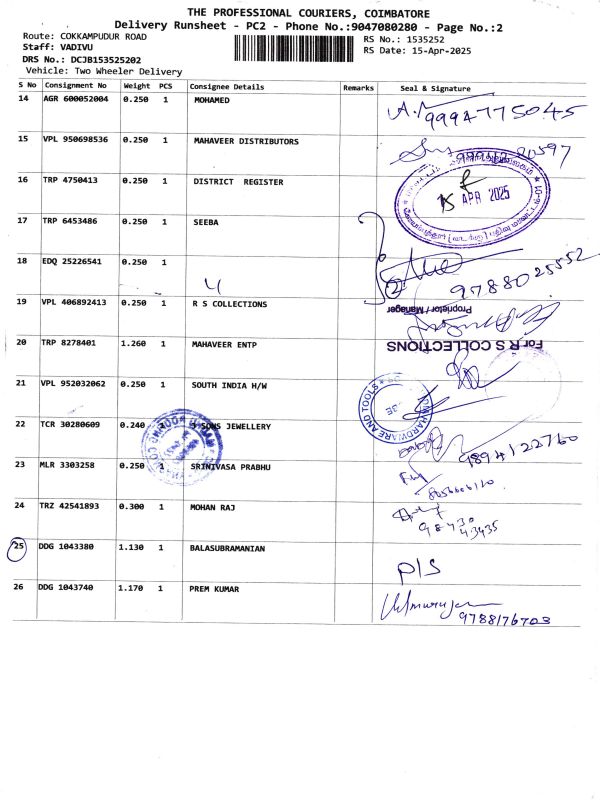 THE PROFESSIONAL COURIERS, COIMBATORE
Delivery Runsheet - PC2 - Phone No.:9047080280 - Page No.:2
Route: COKKAMPUDUR ROAD
RS No.: 1535252
Staff: VADIVU
RS Date: 15-Apr-2025
DRS No.: DCJB153525202
Vehicle: Two Wheeler Delivery
S No Consignment No Weight PCS Consignee Details Remarks Seal & Signature
14 AGR 600052004 0.250 1 MOHAMED
9994775045
15 VPL 950698536 0.250 1 MAHAVEER DISTRIBUTORS
16 TRP 4750413 0.250 1 DISTRICT REGISTER
15 APR 2025
17 TRP 6453486 0.250 1 SEEBA
18 EDQ 25226541 0.250 1
9788025552
19 VPL 406892413 0.250 1 R S COLLECTIONS
Proprietor / Manager
20 TRP 8278401 1.260 1 MAHAVEER ENTP
For R S COLLECTIONS
21 VPL 952032062 0.250 1 SOUTH INDIA H/W
HARDWARE AND TOOLS
22 TCR 30280609 0.240 SONS JEWELLERY
9894122760
23 MLR 3303258 0.250 1 SRINIVASA PRABHU
24 TRZ 42541893 0.300 1 MOHAN RAJ
98430
43435
25 DDG 1043380 1.130 1 BALASUBRAMANIAN
P/S
26 DDG 1043740 1.170 1 PREM KUMAR
9788176703